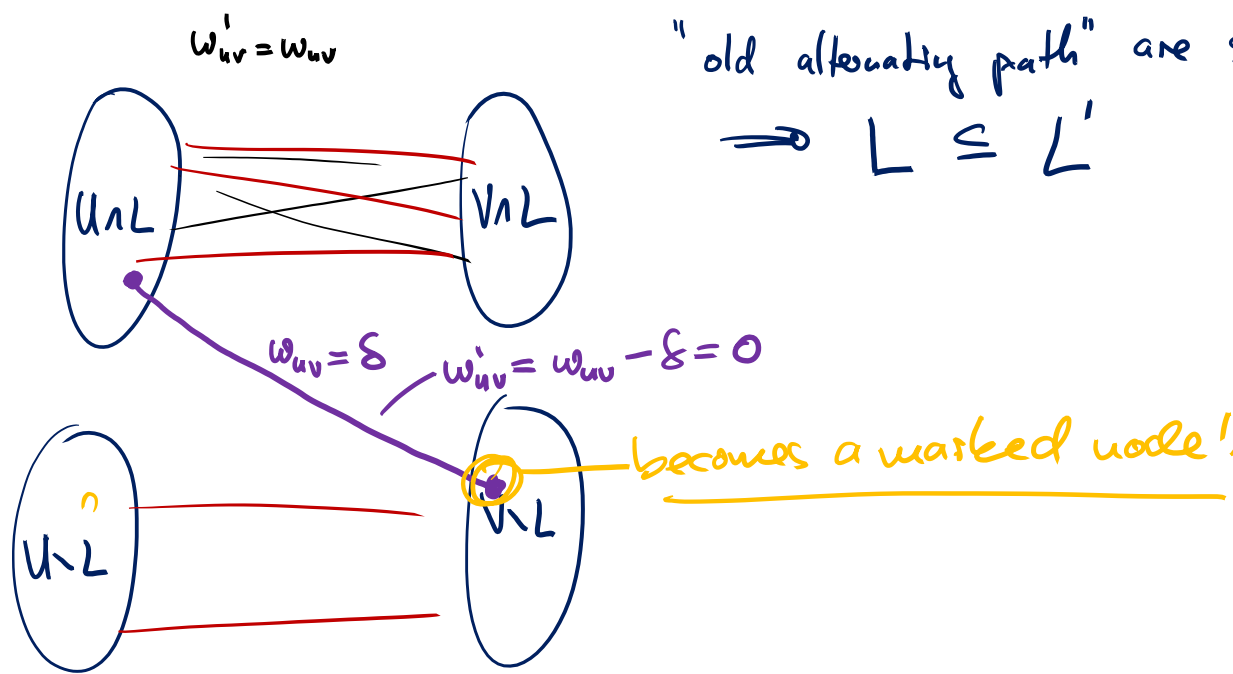 w'uv = wuv
"old alternating path" are
⟹ L ⊆ L'
U∩L
V∩L
wuv = δ
w'uv = wuv − δ = 0
becomes a marked node!
U∖L
V∖L